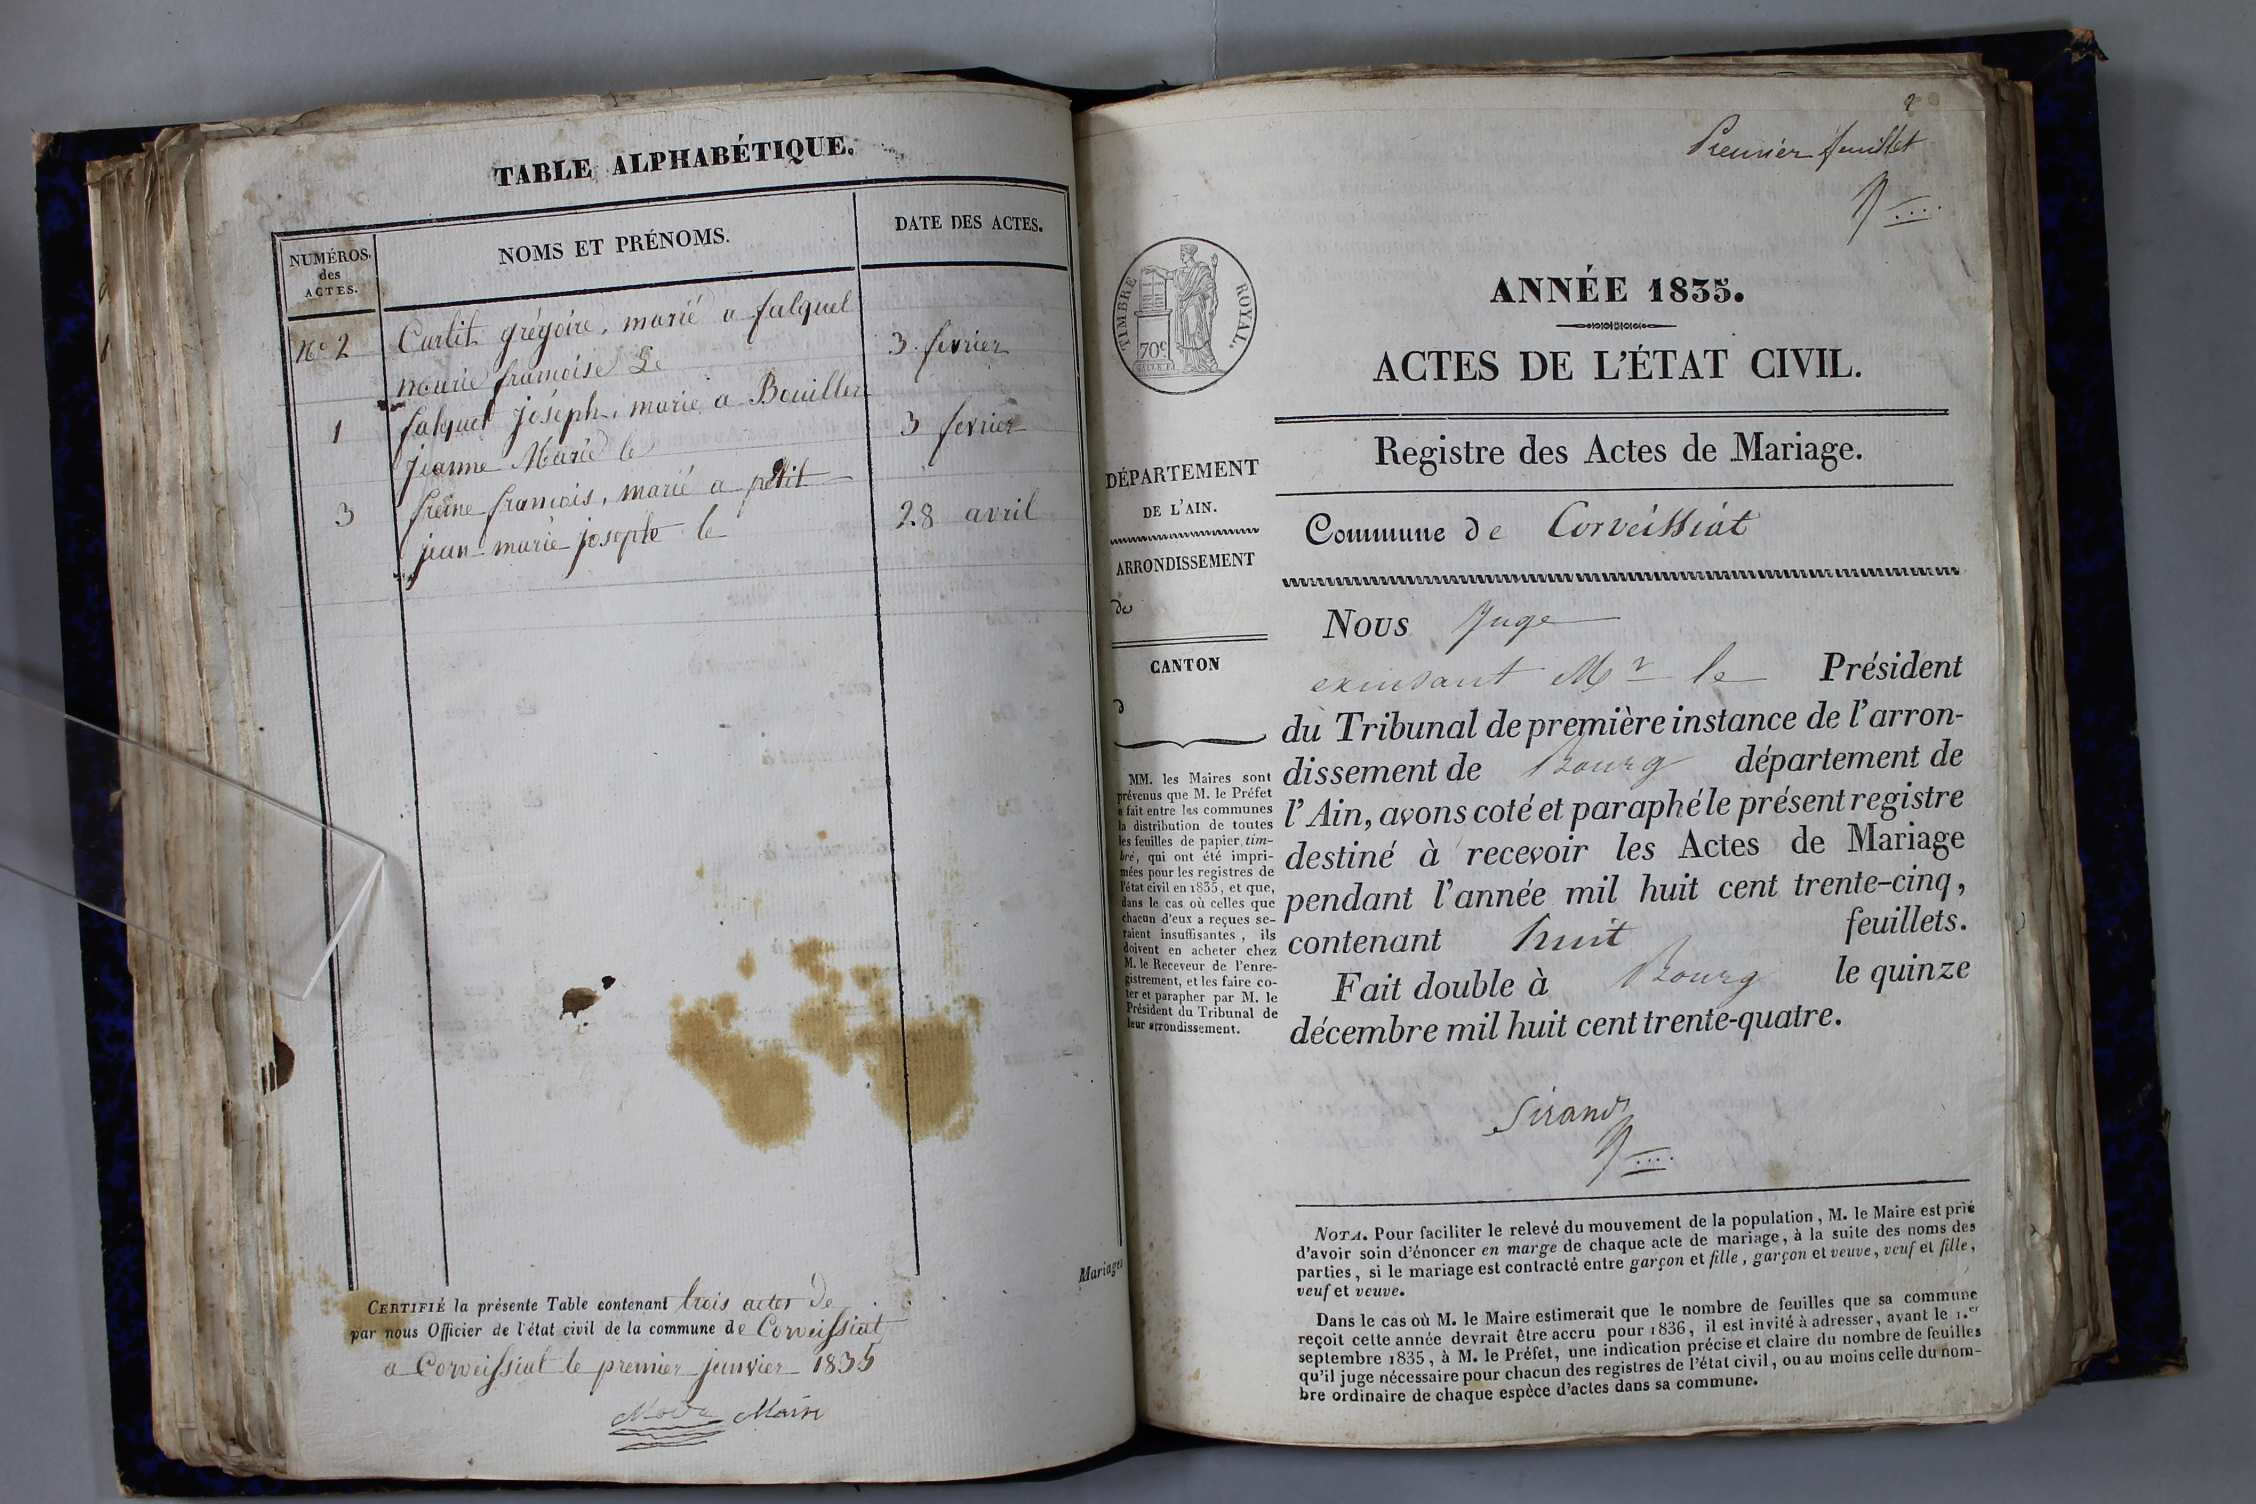 TABLE ALPHABÉTIQUE.
NUMÉROS
des
ACTES.
NOMS ET PRÉNOMS.
DATE DES ACTES.
No 2 Curlit grégoire, marié a falquet
marie françoise Le 3 fevrier
1 falquet joseph, marié a Bouiller
jeanne Marie le 3 fevrier
3 françois, marié a petit
jean-marie josephte le 28 avril
CERTIFIÉ la présente Table contenant trois actes de
par nous Officier de l'état civil de la commune de Corveissiat
a Corveissiat le premier janvier 1835
Maire
Mariages
2
Premier feuillet
TIMBRE ROYAL.
70c
ANNÉE 1835.
ACTES DE L'ÉTAT CIVIL.
Registre des Actes de Mariage.
Commune de Corveissiat
DÉPARTEMENT
DE L'AIN.
ARRONDISSEMENT
de
CANTON
d
MM. les Maires sont
prévenus que M. le Préfet
a fait entre les communes
la distribution de toutes
les feuilles de papier tim-
bré, qui ont été impri-
mées pour les registres de
l'état civil en 1835, et que,
dans le cas où celles que
chacun d'eux a reçues se-
raient insuffisantes, ils
doivent en acheter chez
M. le Receveur de l'enre-
gistrement, et les faire co-
ter et parapher par M. le
Président du Tribunal de
leur arrondissement.
Nous Juge
exerçant Mr le Président
du Tribunal de première instance de l'arron-
dissement de Bourg département de
l'Ain, avons coté et paraphé le présent registre
destiné à recevoir les Actes de Mariage
pendant l'année mil huit cent trente-cinq,
contenant huit feuillets.
Fait double à Bourg le quinze
décembre mil huit cent trente-quatre.
Sirand
NOTA. Pour faciliter le relevé du mouvement de la population, M. le Maire est prié
d'avoir soin d'énoncer en marge de chaque acte de mariage, à la suite des noms des
parties, si le mariage est contracté entre garçon et fille, garçon et veuve, veuf et fille,
veuf et veuve.
Dans le cas où M. le Maire estimerait que le nombre de feuilles que sa commune
reçoit cette année devrait être accru pour 1836, il est invité à adresser, avant le 1.er
septembre 1835, à M. le Préfet, une indication précise et claire du nombre de feuilles
qu'il juge nécessaire pour chacun des registres de l'état civil, ou au moins celle du nom-
bre ordinaire de chaque espèce d'actes dans sa commune.